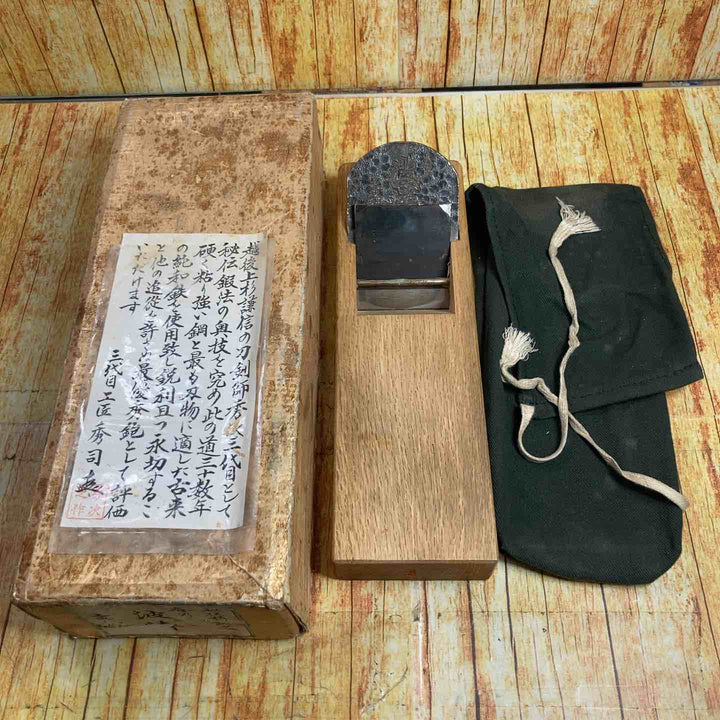 越後上杉謙信の刀剣師秀 三代目として
秘伝鍛法の奥技を究め此の道三十数年
硬く粘り強い鋼と最も刃物に適した古来
の純和鉄を使用致し鋭利且つ永切するこ
と他の追従を許さぬ最 秀鉋として評価
いただけます
三代目工匠秀司